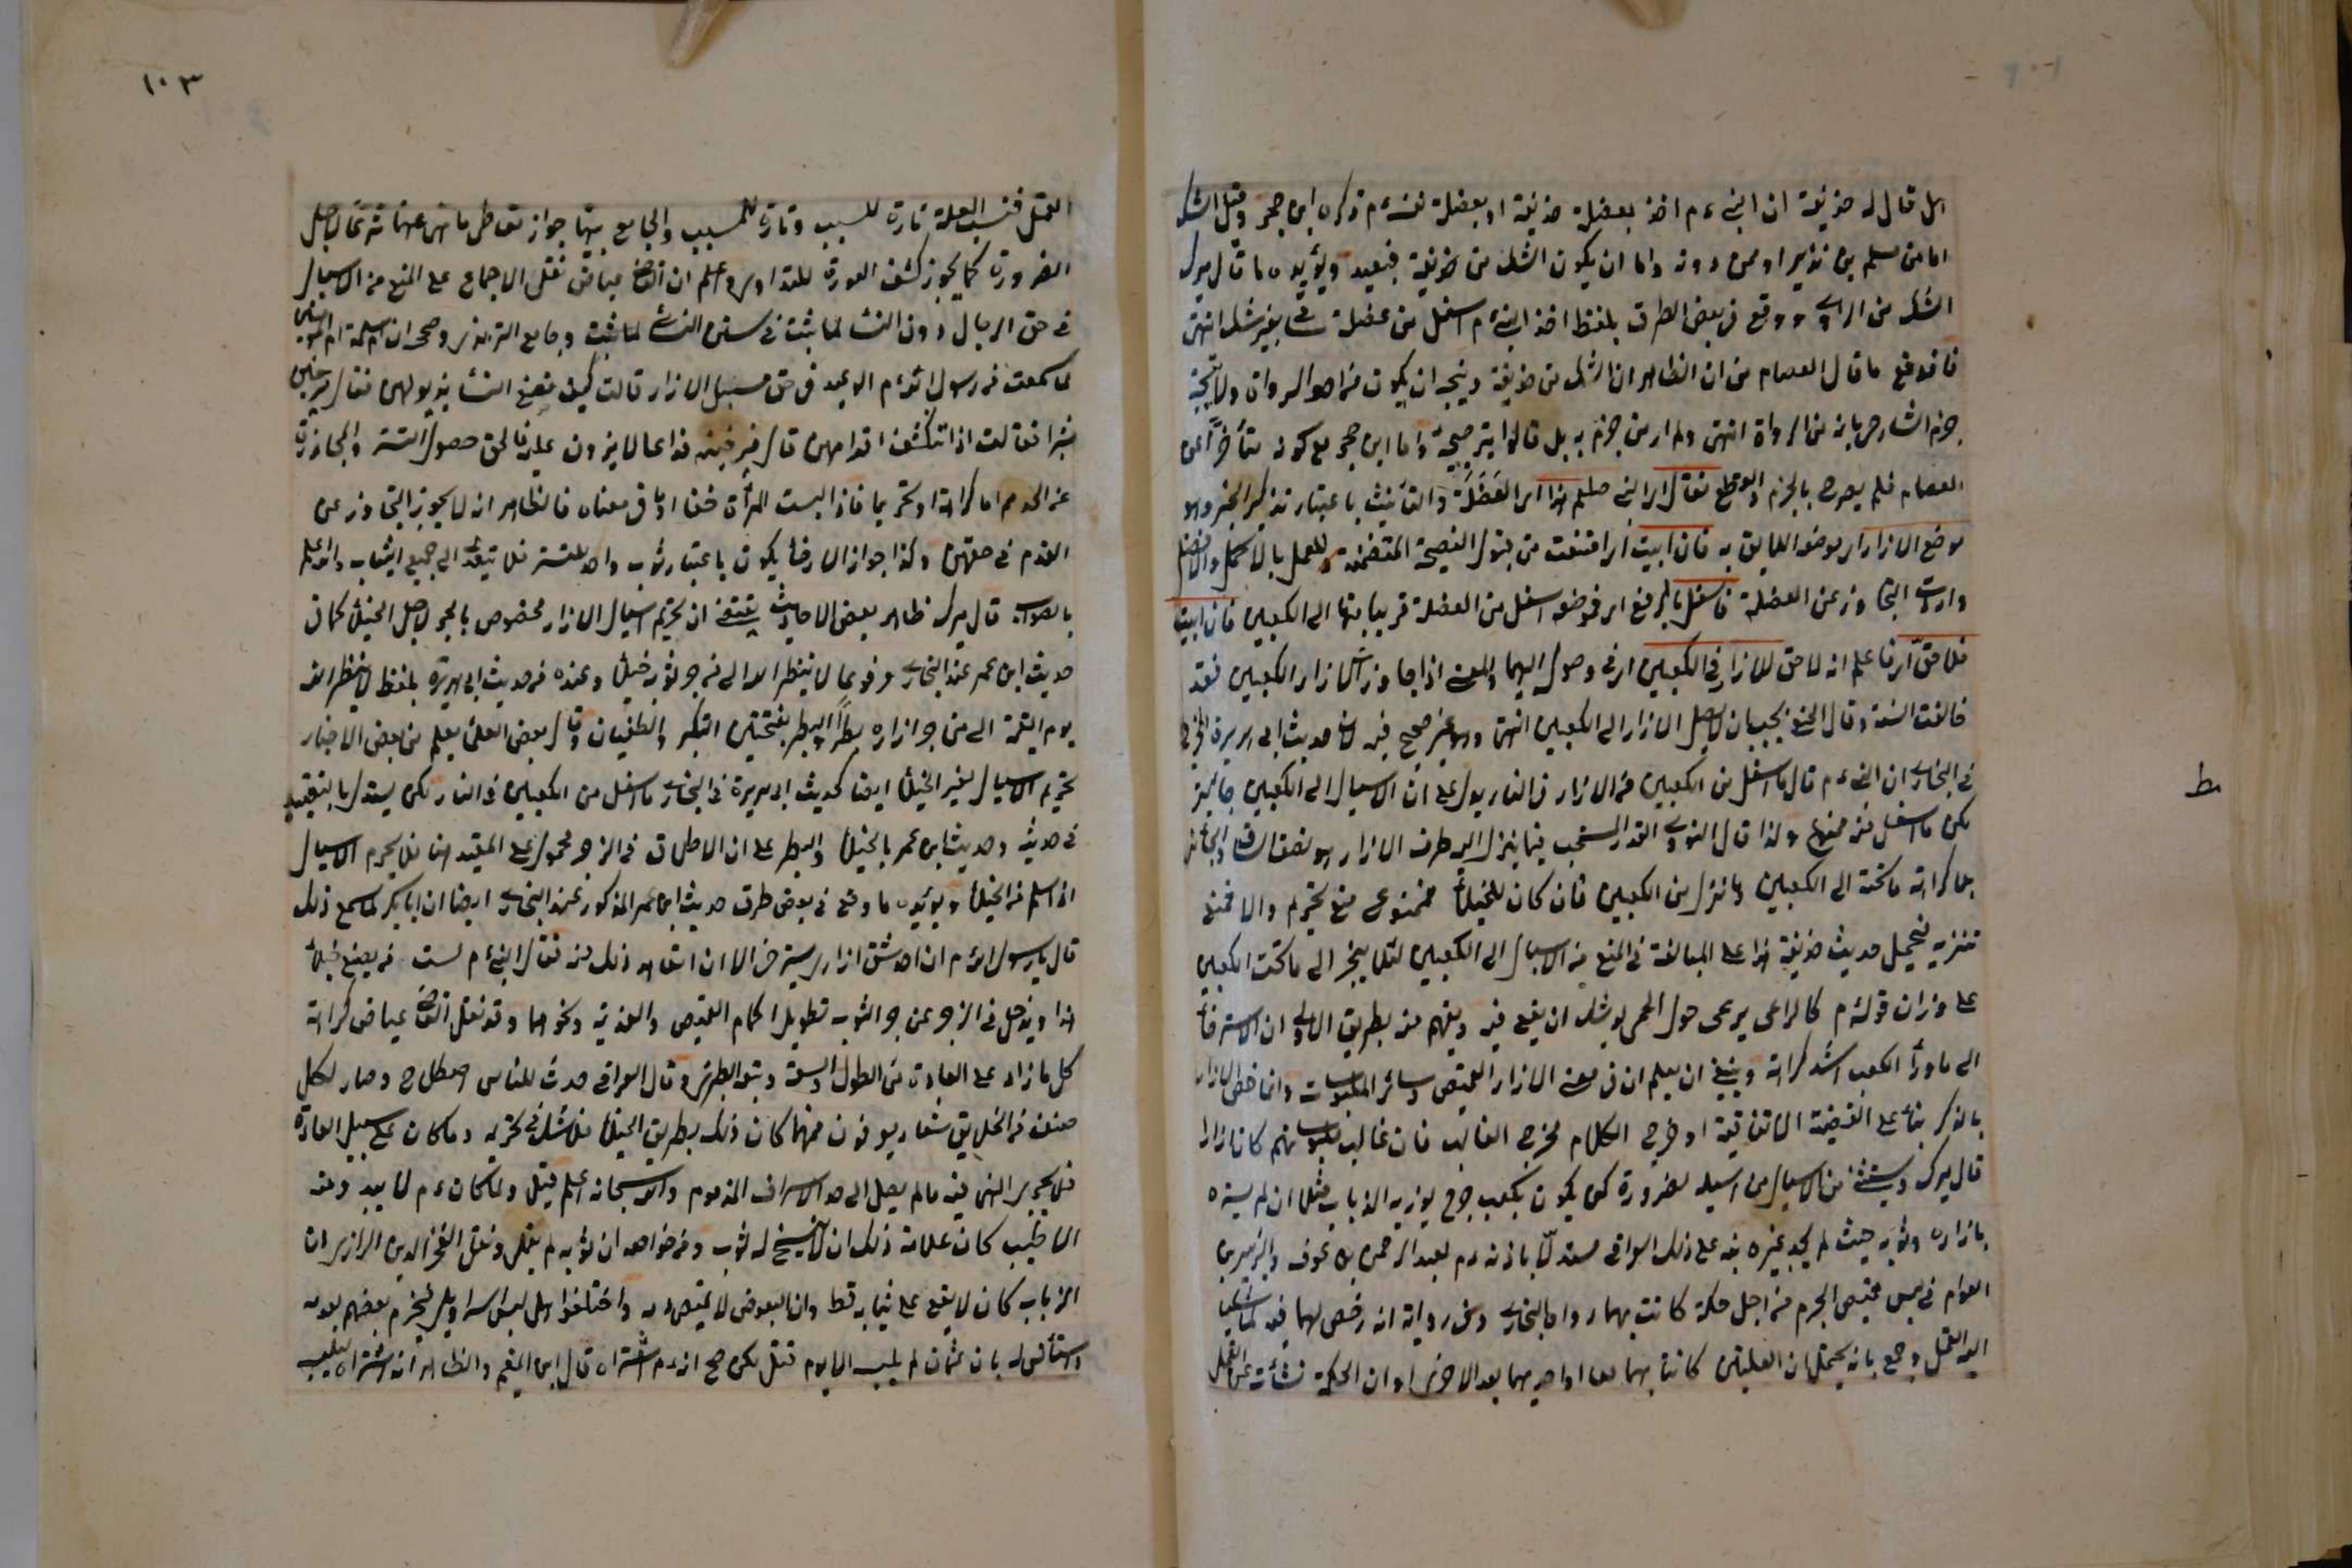 هل قال له حذيفة ان النبي ءم اخذ بعضلة حذيفة او بعضلة نفسه ءم ذكره ابن حجر وقيل الشك
اما من مسلم بن نذير او ممن دونه واما ان يكون الشك من حذيفة فبعيد ويؤيده ما قال ميرك
الشك من الراوي ووقع في بعض الطرق بلفظ اخذ النبي ءم اسفل من عضلة ساقي بغير شك انتهى
فاندفع ما قال العصام من ان الظاهر ان الشك من حذيفة ويتجه ان يكون من احد الرواة ولا يتجه
جزم الشارح بانه من الرواة انتهى ولم ار من جزم به بل قالوا بترجيحه واما ابن حجر مع كونه متأخرا عن
العصام فلم يصرح بالجزم والقطع فقال اي النبي صلعم هذا اي العضلة والتأنيث باعتبار تذكير الخبر وهو
موضع الازار اي موضعه اللايق به فان ابيت اي امتنعت من قبول النصيحة المتضمنة للعمل بالاكمل والافضل
واردت التجاوز عن العضلة فاسفل بالرفع اي فوضعه اسفل من العضلة قريبا منها الى الكعبين فان ابيت
فلا حق اي فاعلم انه لا حق للازار في الكعبين اي في وصوله اليهما والمعنى اذا جاوز الازار الكعبين فقد
خالفت السنة وقال الحنفي يجب ان لا يصل الازار الى الكعبين انتهى وهو غير صحيح فيه لان حديث ابي هريرة
في البخاري ان النبي ءم قال ما اسفل من الكعبين من الازار في النار يدل على ان الاسبال الى الكعبين جايز
لكن ما اسفل منه ممنوع ولذا قال النووي القدر المستحب فيما ينزل اليه طرف الازار هو نصف الساق والجائز
بلا كراهة ما تحته الى الكعبين وما نزل من الكعبين فان كان للخيلاء فممنوع منع تحريم والا فمنع
تنزيه فيحمل حديث حذيفة هذا على المبالغة في المنع من الاسبال الى الكعبين لئلا ينجر الى ما تحت الكعبين
على وزان قوله ءم كالراعي يرعى حول الحمى يوشك ان يقع فيه ويفهم منه بطريق الاولى ان الاسترخاء
الى ما وراء الكعب اشد كراهة وينبغي ان يعلم ان في معنى الازار القميص وسائر الملبوسات وانما خص الازار
بالذكر بناء على القضية الاتفاقية او خرج الكلام مخرج الغالب فان غالب ملبوساتهم كان ازارا
قال ميرك ويستثنى من الاسبال من اسبله لضرورة كمن يكون بكعبه جرح يؤذيه الذباب مثلا ان لم يستره
بازاره وثوبه حيث لم يجد غيره نبه على ذلك العراقي مستدلا باذنه ءم لعبد الرحمن بن عوف والزبير بن
العوام في لبس قميص الحرير من اجل حكة كانت بهما رواه البخاري وفي رواية انه رخص لهما فيه لما شكيا
اليه القمل وجمع بانه يحتمل ان العلتين كانتا بهما معا او احديهما بعد الاخرى او ان الحكة نشأت عن القمل
ط
١٠٣
القمل فنسب العلة تارة للسبب وتارة للمسبب والجامع بينهما جواز تعاطي ما نهى عنه شرعا لاجل
الضرورة كما يجوز كشف العورة للتداوي واعلم ان القاضي عياض نقل الاجماع على المنع من الاسبال
في حق الرجال دون النساء لما ثبت في سنن النسائي وجامع الترمذي وصححه ان ام سلمة ام المؤمنين
لما سمعت من رسول الله ءم الوعيد في حق مسبل الازار قالت كيف تصنع النساء بذيولهن فقال يرخين
شبرا فقالت اذا تنكشف اقدامهن قال فيرخينه ذراعا لا يزدن عليه فالحق حصول الستر والمجاوزة
عن الحد اما كراهة او تحريما فاذا لبست المرأة خفا او ما في معناه فالظاهر انه لا يجوز التجاوز عن
القدم في حقهن وكذا جواز الارخاء يكون باعتبار ثوب واحد للستر فلا يتعدى الى جميع الثياب والله اعلم
بالصواب قال ميرك ظاهر بعض الاحاديث يقتضي ان تحريم اسبال الازار مخصوص بالجر لاجل الخيلاء كما في
حديث ابن عمر عند البخاري مرفوعا لا ينظر الله الى من جر ثوبه خيلاء وعنده من حديث ابي هريرة بلفظ لا ينظر الله
يوم القيمة الى من جر ازاره بطرا والبطر بفتحتين التكبر والطغيان وقال بعض العلماء يعلم من بعض الاخبار
تحريم الاسبال لغير الخيلاء ايضا كحديث ابي هريرة في البخاري ما اسفل من الكعبين في النار لكن يستدل بالتقييد
في حديثه وحديث ابن عمر بالخيلاء والبطر على ان الاطلاق في الزجر محمول على المقيد هنا فلا يحرم الاسبال
اذا سلم من الخيلاء ويؤيده ما وقع في بعض طرق حديث ابن عمر المذكور عند البخاري ايضا ان ابا بكر لما سمع ذلك
قال يا رسول الله ءم ان احد شقي ازاري يسترخي الا ان اتعاهد ذلك منه فقال النبي ءم لست ممن يصنع خيلاء
هذا ويدخل في الزجر عن جر الثوب تطويل اكمام القميص والعذبة ونحوهما وقد نقل القاضي عياض كراهة
كل ما زاد على العادة من الطول والسعة وتبعه الطبري وقال العراقي حدث للناس اصطلاح وصار لكل
صنف من الخلايق شعار يعرفون به فمهما كان ذلك بطريق الخيلاء فلا شك في تحريمه وما كان على سبيل العادة
فلا يجري النهي فيه ما لم يصل الى حد الاسراف المذموم والله سبحانه اعلم قيل ولما كان ءم لا يبدو منه
الا طيب كان علامة ذلك ان لا يتسخ له ثوب ومن خواصه ان ثوبه لم يقمل ونقل الفخر الدين الرازي ان
الذباب كان لا يقع على ثيابه قط وان البعوض لا يمتص دمه واختلفوا هل لبس السراويل فجزم بعضهم بعدمه
واستأنس له بان عثمان لم يلبسه الا يوم قتل لكن صح انه ءم اشتراه قال ابن القيم والظاهر انه اشتراه ليلبسه